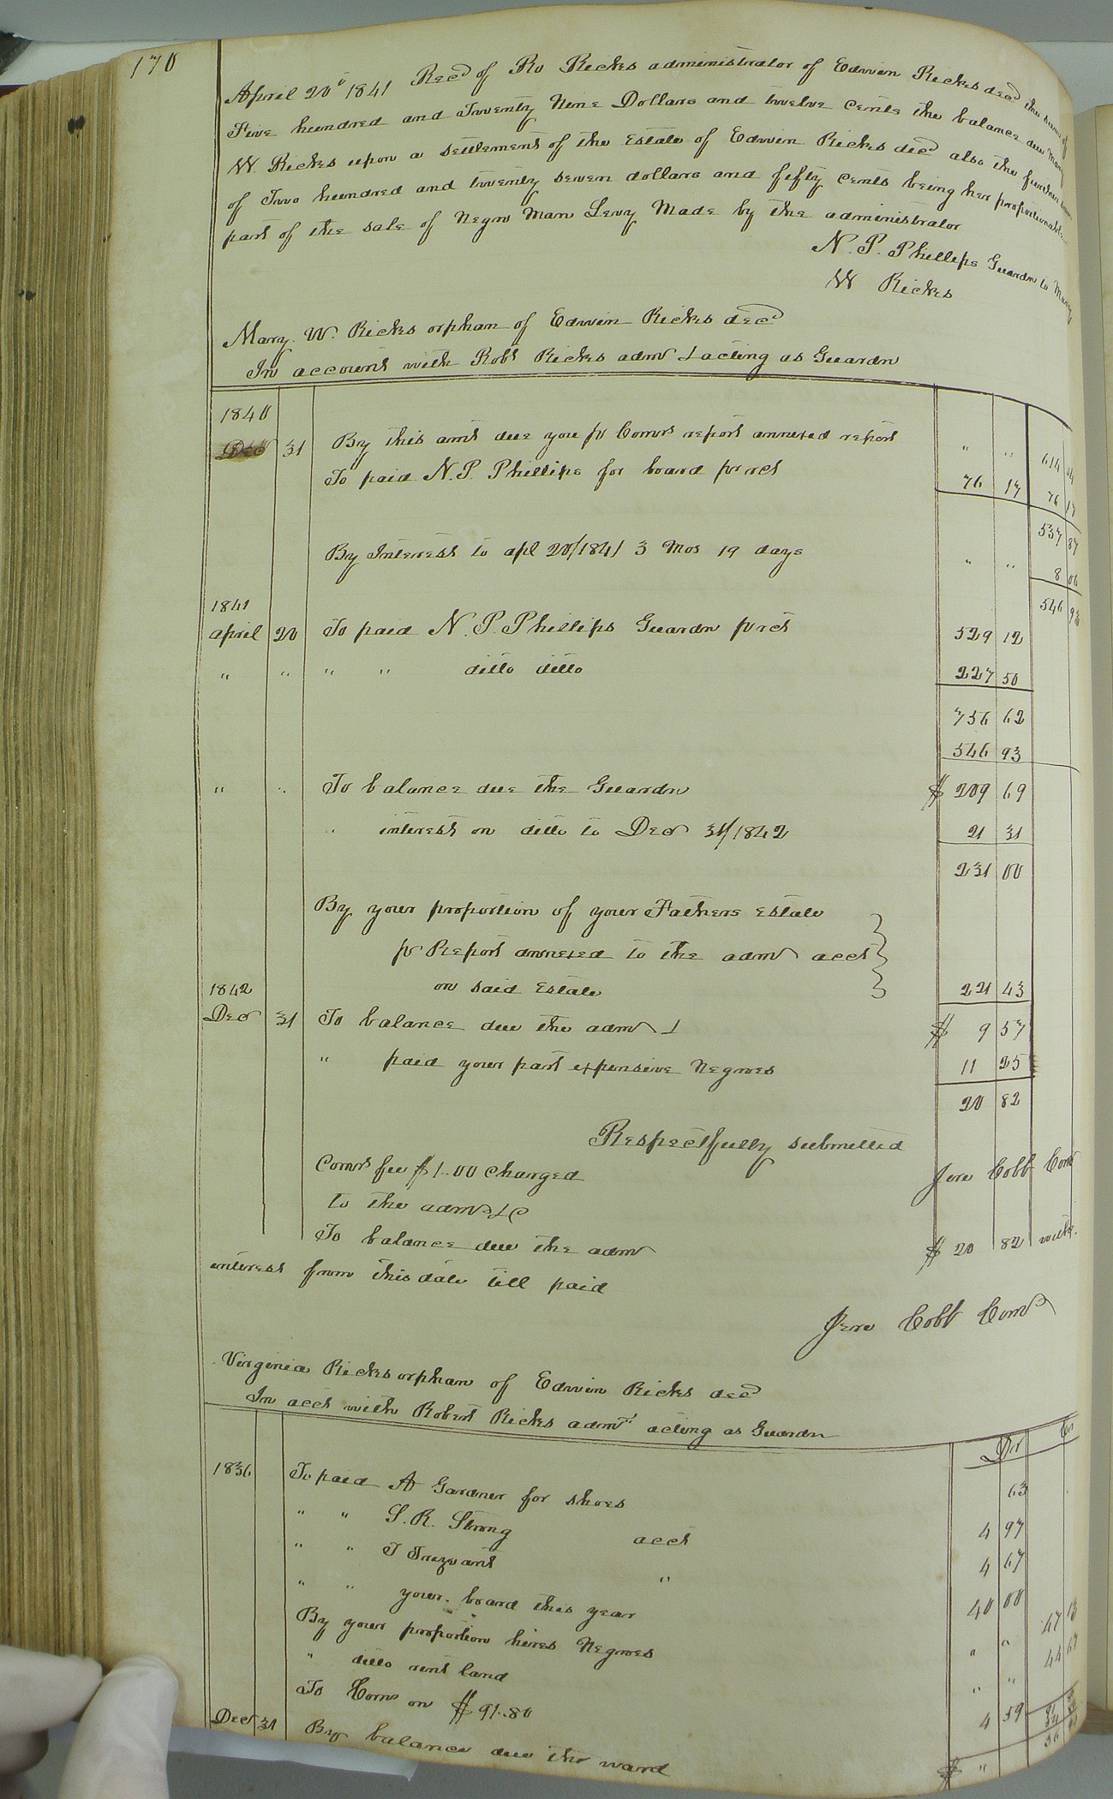 170
April 20th 1841 Recd of Ro Ricks administrator of Edwin Ricks decd the sum of
Five hundred and Twenty Nine Dollars and twelve cents the balance due Mary
W. Ricks upon a settlement of the Estate of Edwin Ricks decd also the further sum
of Two hundred and twenty seven dollars and fifty cents being her proportionable
part of the sale of Negro Man Levy Made by the administrator
N. P. Phillips Guardn to Mary
W Ricks
Mary. W. Ricks orphan of Edwin Ricks decd
In account with Robt Ricks admr & acting as Guardn
1840
Dec 31 By this amt due you pr Comrs report annexed report " " 614 04
To paid N. P. Phillips for board pr rct 76 17 76 17
537 87
By Interest to apl 20/1841 3 Mos 19 days " " 8 06
1841 546 93
April 20 To paid N. P. Phillips Guardn pr rct 529 12
" " " " ditto ditto 227 50
756 62
546 93
" " To balance due the Guardn $ 209 69
" interest on ditto to Decr 31/1842 21 31
231 00
By your proportion of your Fathers Estate
pr Report annexed to the admr acct
1842 on said Estate 221 43
Decr 31 To balance due the admr & $ 9 57
" paid your part expensive Negroes 11 25
20 82
Respectfully submitted
Comrs fee $1.00 charged Jere Cobb Comr
to the admr &c
To balance due the admr $ 20 82 with
interest from this date till paid
Jere Cobb Comr
Virginia Ricks orphan of Edwin Ricks decd
In acct with Robert Ricks admr acting as Guardn
Dr Cr
1836 To paid A Gardner for shoes 63
" " S. R. Strong acct 4 97
" " J Trezvant " 4 67
" " your board this year 40 00
By your proportion hires Negroes " " 47 13
" ditto rent land " " 44 67
To Comr on $91.80 4 59
Decr 31 By balance due the ward $ "